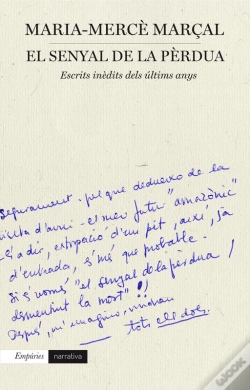 MARIA-MERCÈ MARÇAL
EL SENYAL DE LA PÈRDUA
Escrits inèdits dels últims anys
Segurament - pel que dedueixo de la
visita d'avui - el meu futur "amazònic"
És a dir, extirpació d'un pit, així, ja
d'entrada, s'més que probable.
Si s'només "el senyal de la pèrdua /
desmentint la mort"!)
Després, m'imagino, vindran
tots els dols.
Empúries
narrativa
WOOK